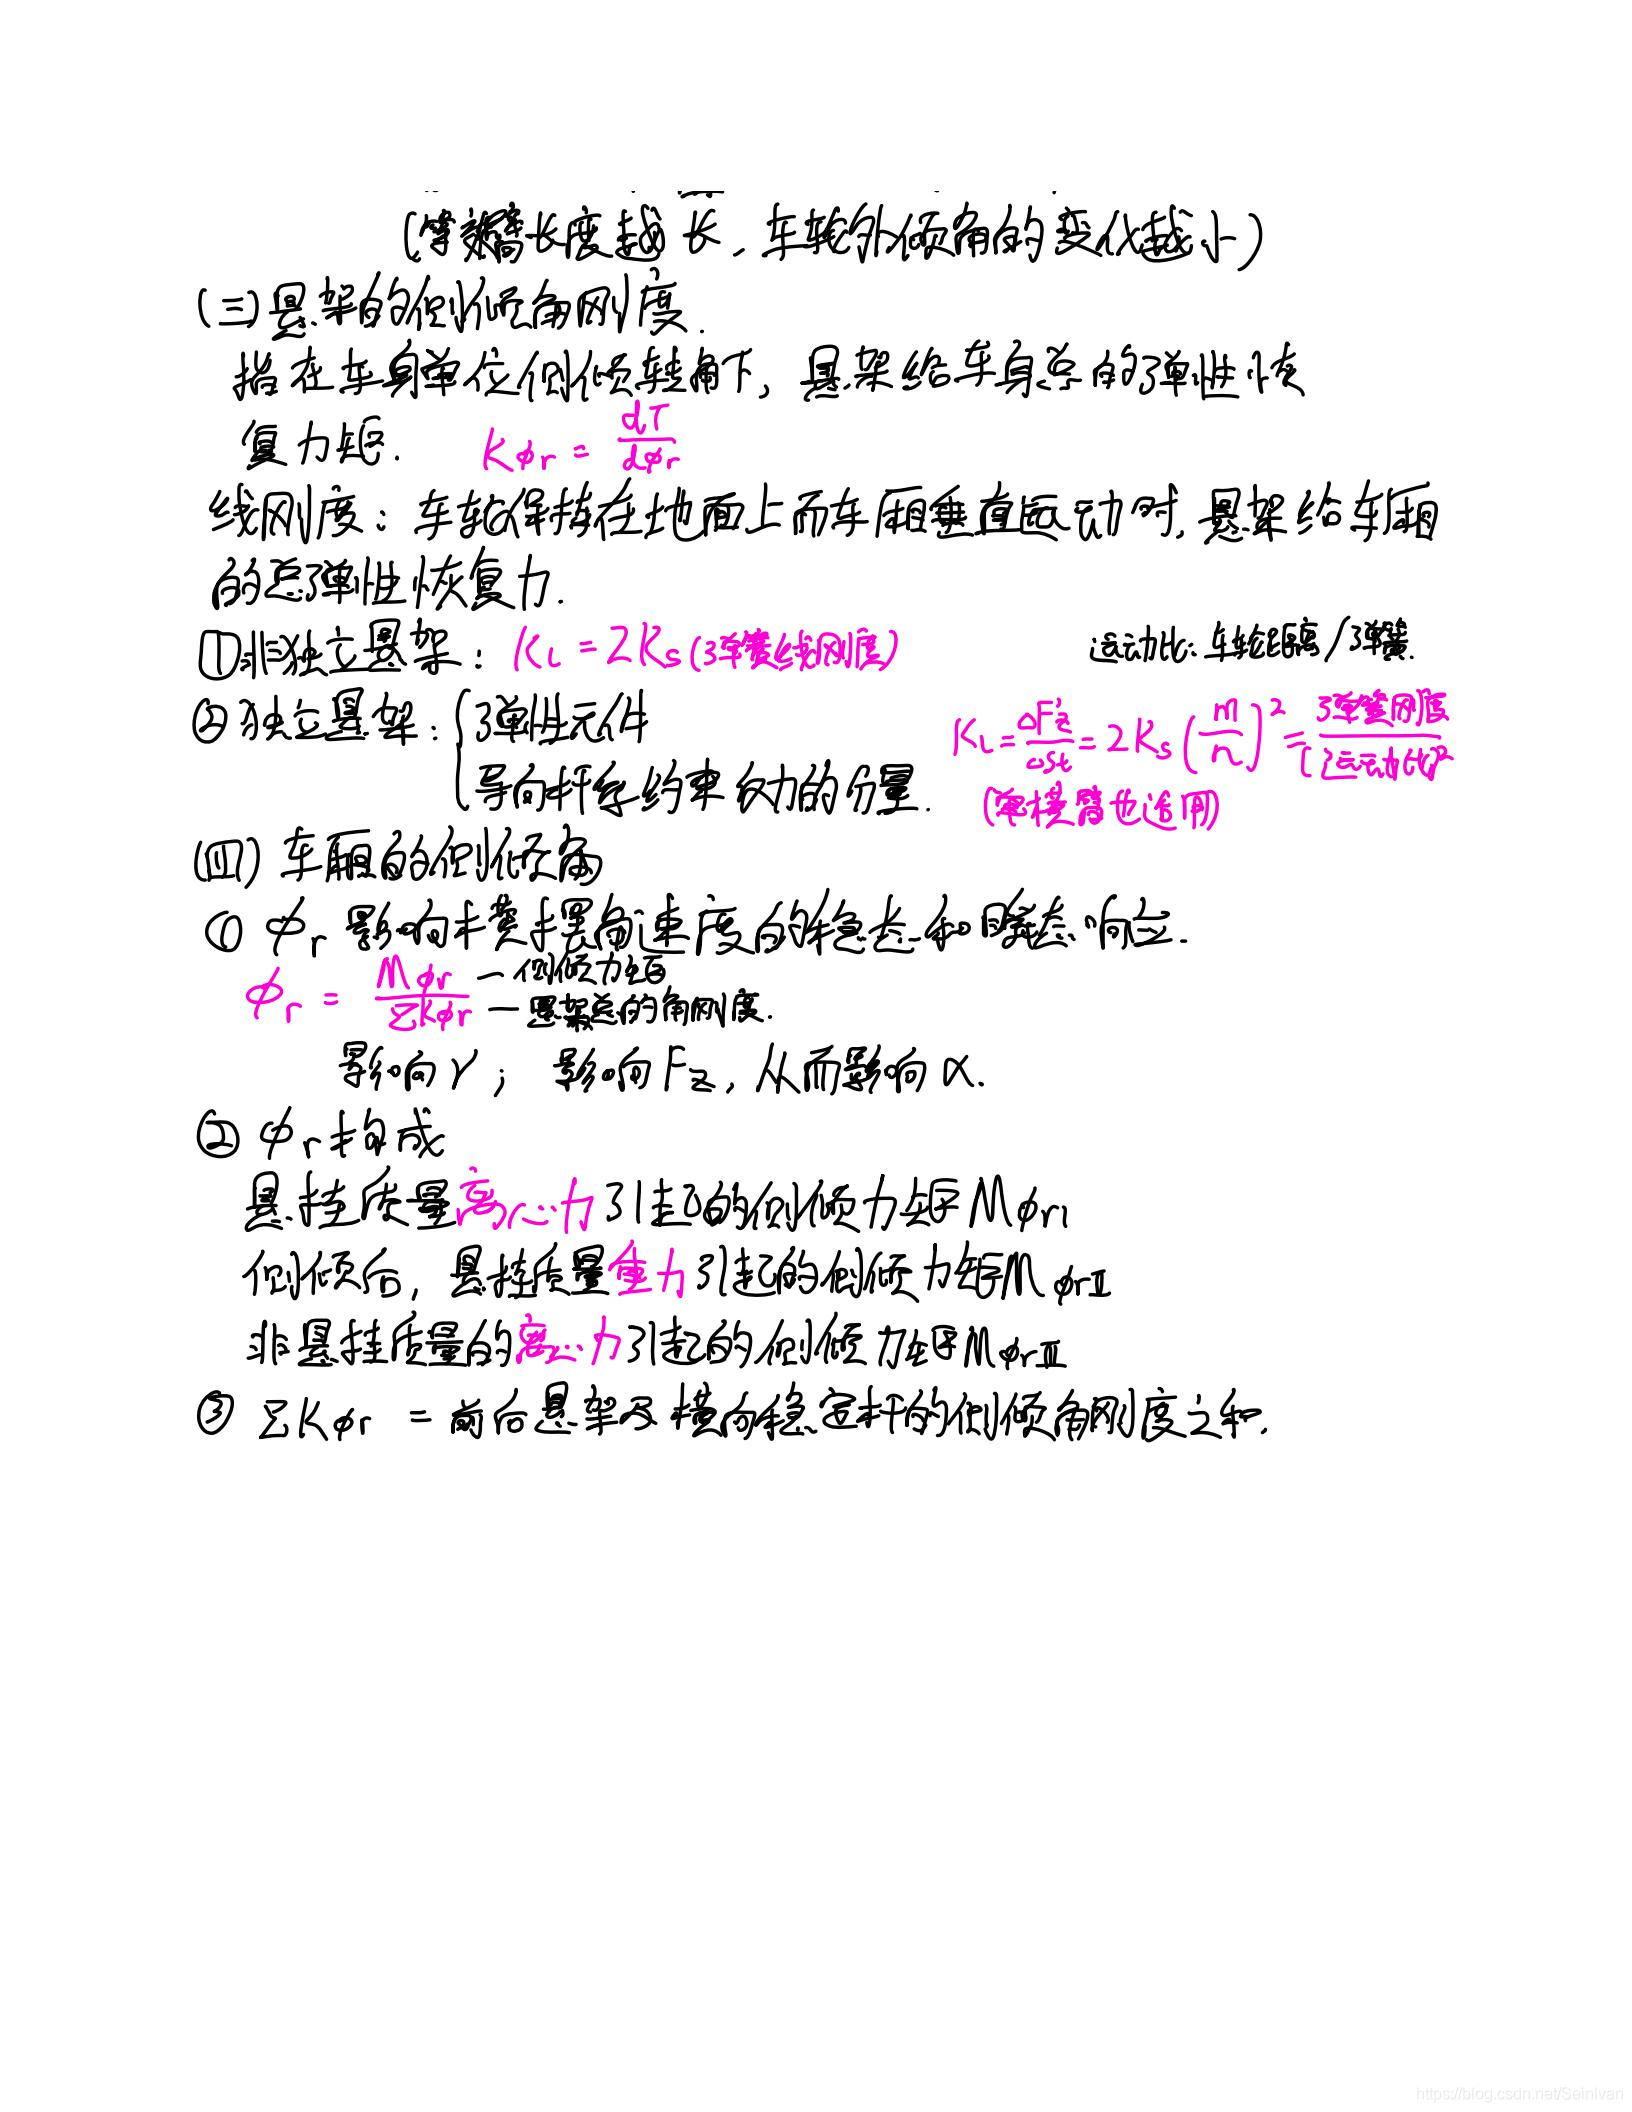 (等效臂长度越长,车轮外倾角的变化越小)
(三)悬架的侧倾角刚度.
指在车身单位侧倾转角下,悬架给车身总的弹性恢
复力矩. Kφr = dT/dφr
线刚度:车轮保持在地面上而车厢垂直运动时,悬架给车厢
的总弹性恢复力.
①非独立悬架: KL = 2Ks (弹簧线刚度) 运动比:车轮距离/弹簧.
②独立悬架:{弹性元件
导向杆系约束反力的分量.
KL = ΔFz'/ΔSt = 2Ks (m/n)² = 弹簧刚度/(运动比)²
(单横臂也适用)
(四)车厢的侧倾角
① φr 影响横摆角速度的稳态和瞬态响应.
φr = Mφr/ΣKφr —侧倾力矩
—悬架总的角刚度.
影响γ; 影响Fz,从而影响α.
② φr构成
悬挂质量离心力引起的侧倾力矩MφrI
侧倾后,悬挂质量重力引起的侧倾力矩MφrⅡ
非悬挂质量的离心力引起的侧倾力矩MφrⅢ
③ ΣKφr = 前后悬架及横向稳定杆的侧倾角刚度之和.
https://blog.csdn.net/SeinIvan